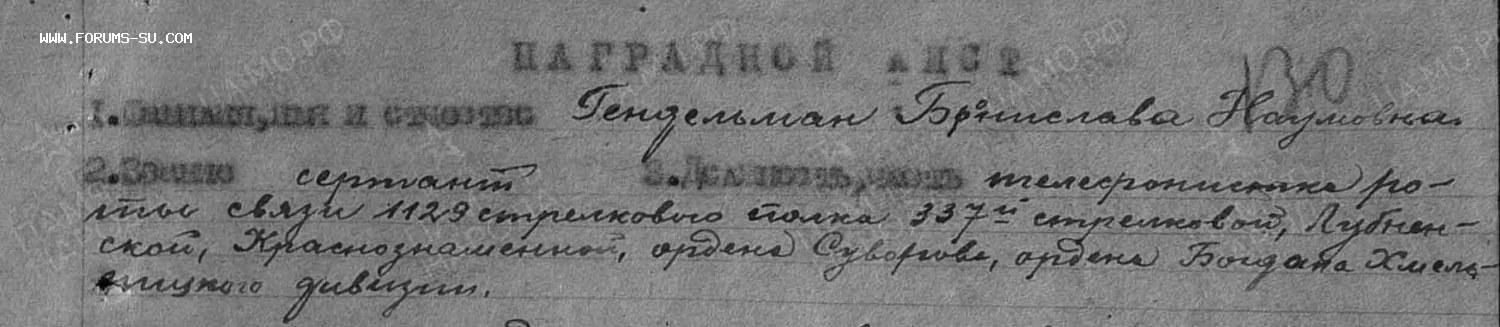 WWW.FORUMS-SU.COM
НАГРАДНОЙ ЛИСТ
130
1. Фамилия, имя и отчество Гендельман Брнислава Наумовна.
2. Звание сержант 3. Должность, часть телефонистка ро-
ты связи 1129 стрелкового полка 337й стрелковой, Лубнен-
ской, Краснознаменной, ордена Суворова, ордена Богдана Хмель-
ницкого дивизии.